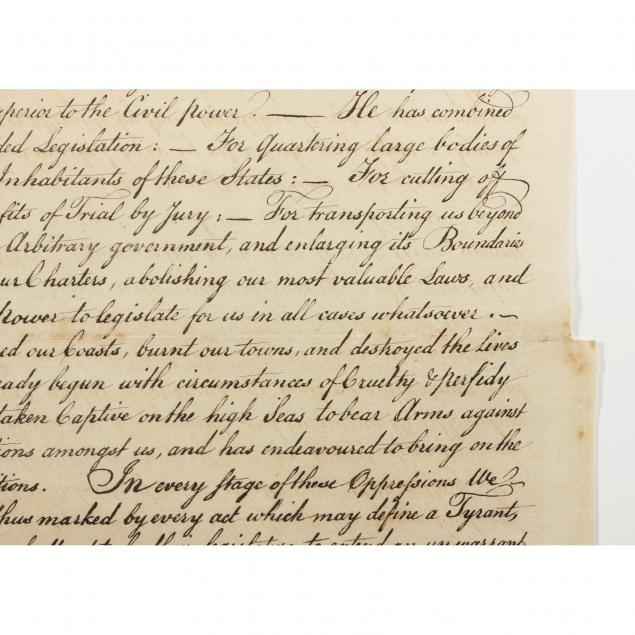 uperior to the Civil power. — He has combined
ded Legislation: — For Quartering large bodies of
Inhabitants of these States: — For cutting off
fits of Trial by Jury: — For transporting us beyond
Arbitrary government, and enlarging its Boundaries
ur Charters, abolishing our most valuable Laws, and
Power to legislate for us in all cases whatsoever. —
ed our Coasts, burnt our towns, and destroyed the lives
eady begun with circumstances of Cruelty & perfidy
taken Captive on the high Seas to bear Arms against
tions amongst us, and has endeavoured to bring on the
itions. In every stage of these Oppressions We
thus marked by every act which may define a Tyrant,
to extend an unwarrant